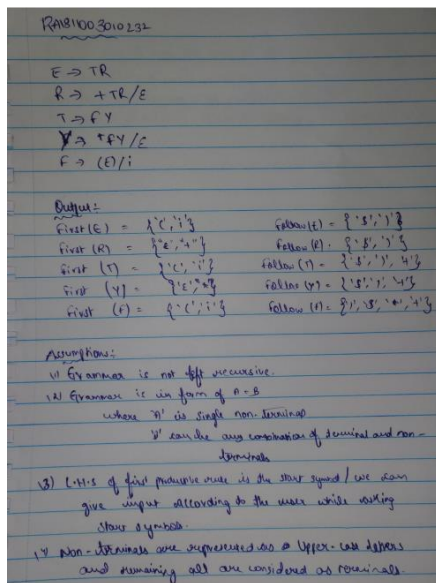 RA1811003010232
E → TR
R → +TR/ε
T → FY
Y → *FY/ε
F → (E)/i
Output:-
First(E) = {'(', 'i'} Follow(E) = {'$', ')'}
First(R) = {'ε', '+'} Follow(R) = {'$', ')'}
First(T) = {'(', 'i'} Follow(T) = {'$', ')', '+'}
First(Y) = {'ε', '*'} Follow(Y) = {'$', ')', '+'}
First(F) = {'(', 'i'} Follow(F) = {')', '$', '*', '+'}
Assumptions:-
1) Grammar is not left recursive.
2) Grammar is in form of A-B
where 'A' is single non-terminal
can be any combination of terminal and non-
terminals
3) L.H.S of first productive rule is the start symbol / we can
give input according to the user while asking
start symbols.
Non-terminals are represented as Upper-case letters
and remaining all are considered as terminals.